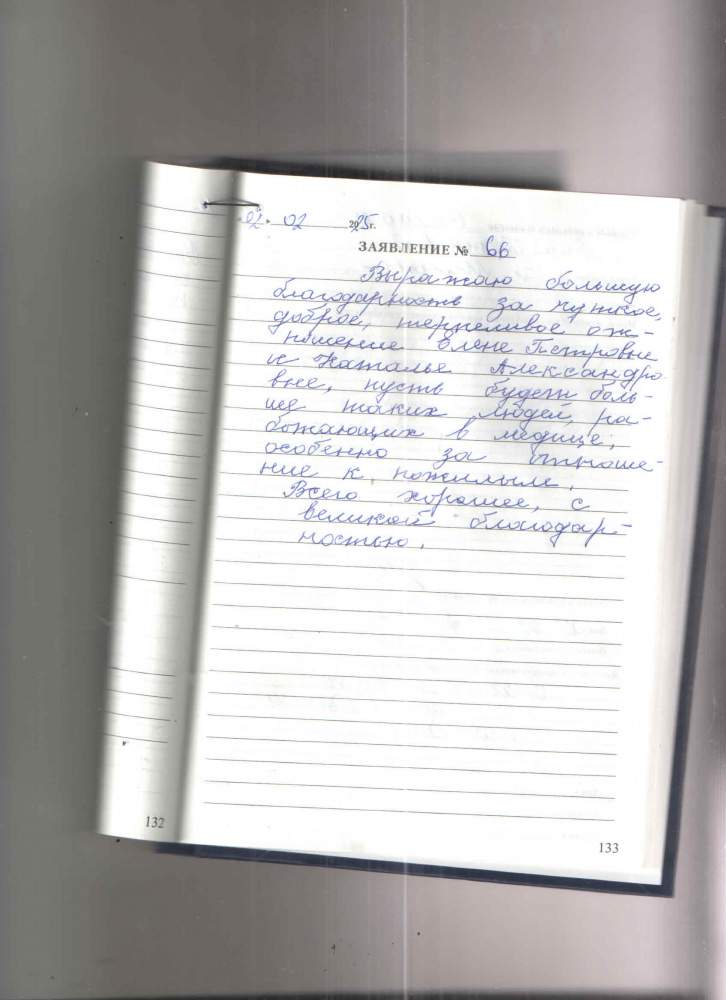 02 02 2025г.
ЗАЯВЛЕНИЕ № 66
Выражаю большую
благодарность за чуткое,
доброе, терпеливое от-
ношение Елене Петровне
и Наталье Александро
вне, пусть будет боль-
ше таких людей, ра-
ботающих в медице,
особенно за отноше-
ние к пожилым.
Всего хорошее, с
великой благодар-
ностью.
132
133